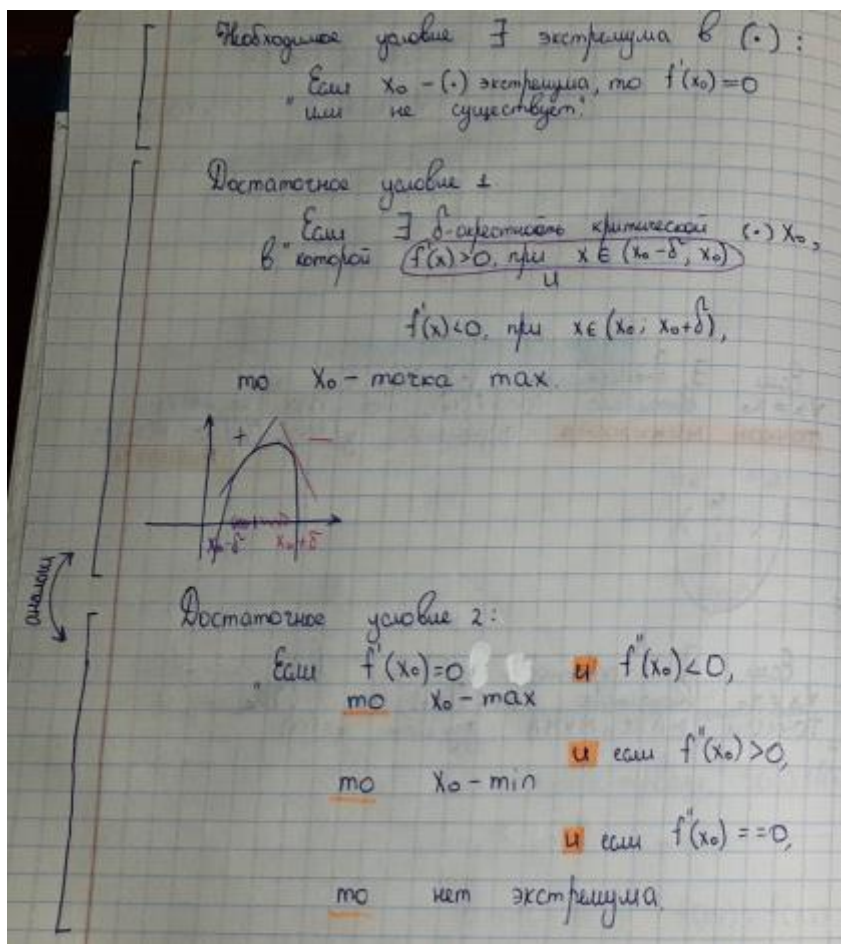 Необходимое условие ∃ экстремума в (•) :
"Если x₀ – (•) экстремума, то f'(x₀) = 0
или не существует."
Достаточное условие 1
Если ∃ δ-окрестность критической (•) x₀,
в "которой f'(x) > 0, при x ∈ (x₀ - δ, x₀)
и
f'(x) < 0, при x ∈ (x₀; x₀+δ),
то x₀ – точка max.
+ —
x₀-δ x₀+δ
аналоги
Достаточное условие 2:
"Если f'(x₀)=0 и f''(x₀) < 0,
то x₀ – max
и если f''(x₀) > 0,
то x₀ – min
и если f''(x₀) == 0,
то нет экстремума.